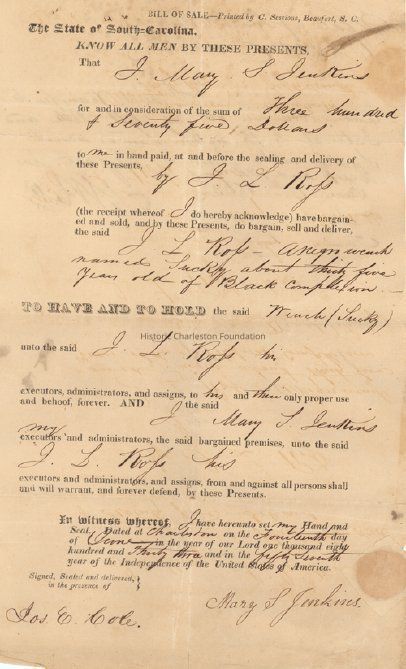 BILL OF SALE—Printed by C. Sessions, Beaufort, S. C.
The State of South-Carolina.
KNOW ALL MEN BY THESE PRESENTS,
That I. Mary S Jenkins
for and in consideration of the sum of Three hundred
& Seventy five, Dollars
to me in hand paid, at and before the sealing and delivery of
these Presents, by J. L Ross
(the receipt whereof I do hereby acknowledge) have bargain-
ed and sold, and by these Presents, do bargain, sell and deliver,
the said J L Ross – a negro wench
named Sucky about thirty five
Years old of Black Complexion
TO HAVE AND TO HOLD the said Wench (Sucky)
Historic Charleston Foundation
unto the said J. L. Ross his
executors, administrators, and assigns, to his and their only proper use
and behoof, forever. AND I the said
Mary S. Jenkins
my
executors and administrators, the said bargained premises, unto the said
J. L. Ross his
executors and administrators, and assigns, from and against all persons shall
and will warrant, and forever defend, by these Presents.
In witness whereof, I have hereunto set my Hand and
Seal. Dated at Charleston on the Fourteenth day
of in the year of our Lord one thousand eight
hundred and Thirty three and in the fifty seventh
year of the Independence of the United States of America.
Signed, Sealed and delivered,
in the presence of
Mary S Jenkins.
Jos E. Cole.